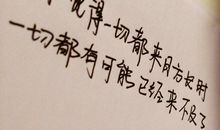 觉得一切都来日方长时
一切都有可能已经来不及了